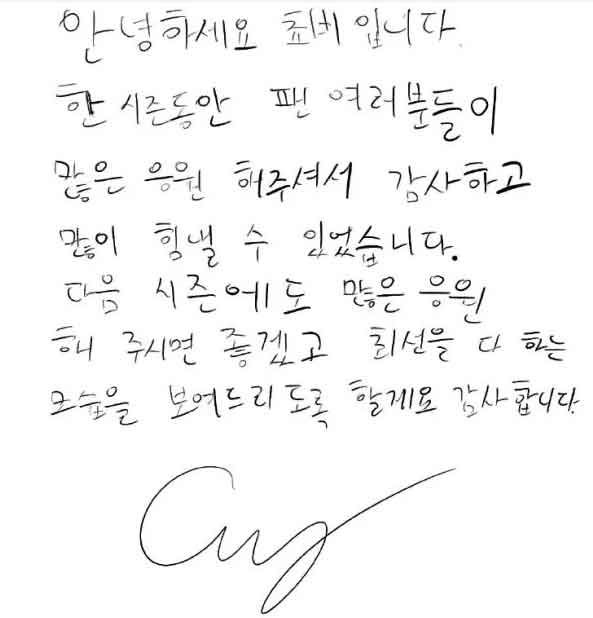 안녕하세요 쵸비 입니다.
한 시즌동안 팬 여러분들이
많은 응원 해주셔서 감사하고
많이 힘낼 수 있었습니다.
다음 시즌에도 많은 응원
해 주시면 좋겠고 최선을 다 하는
모습을 보여드리도록 할게요 감사합니다.